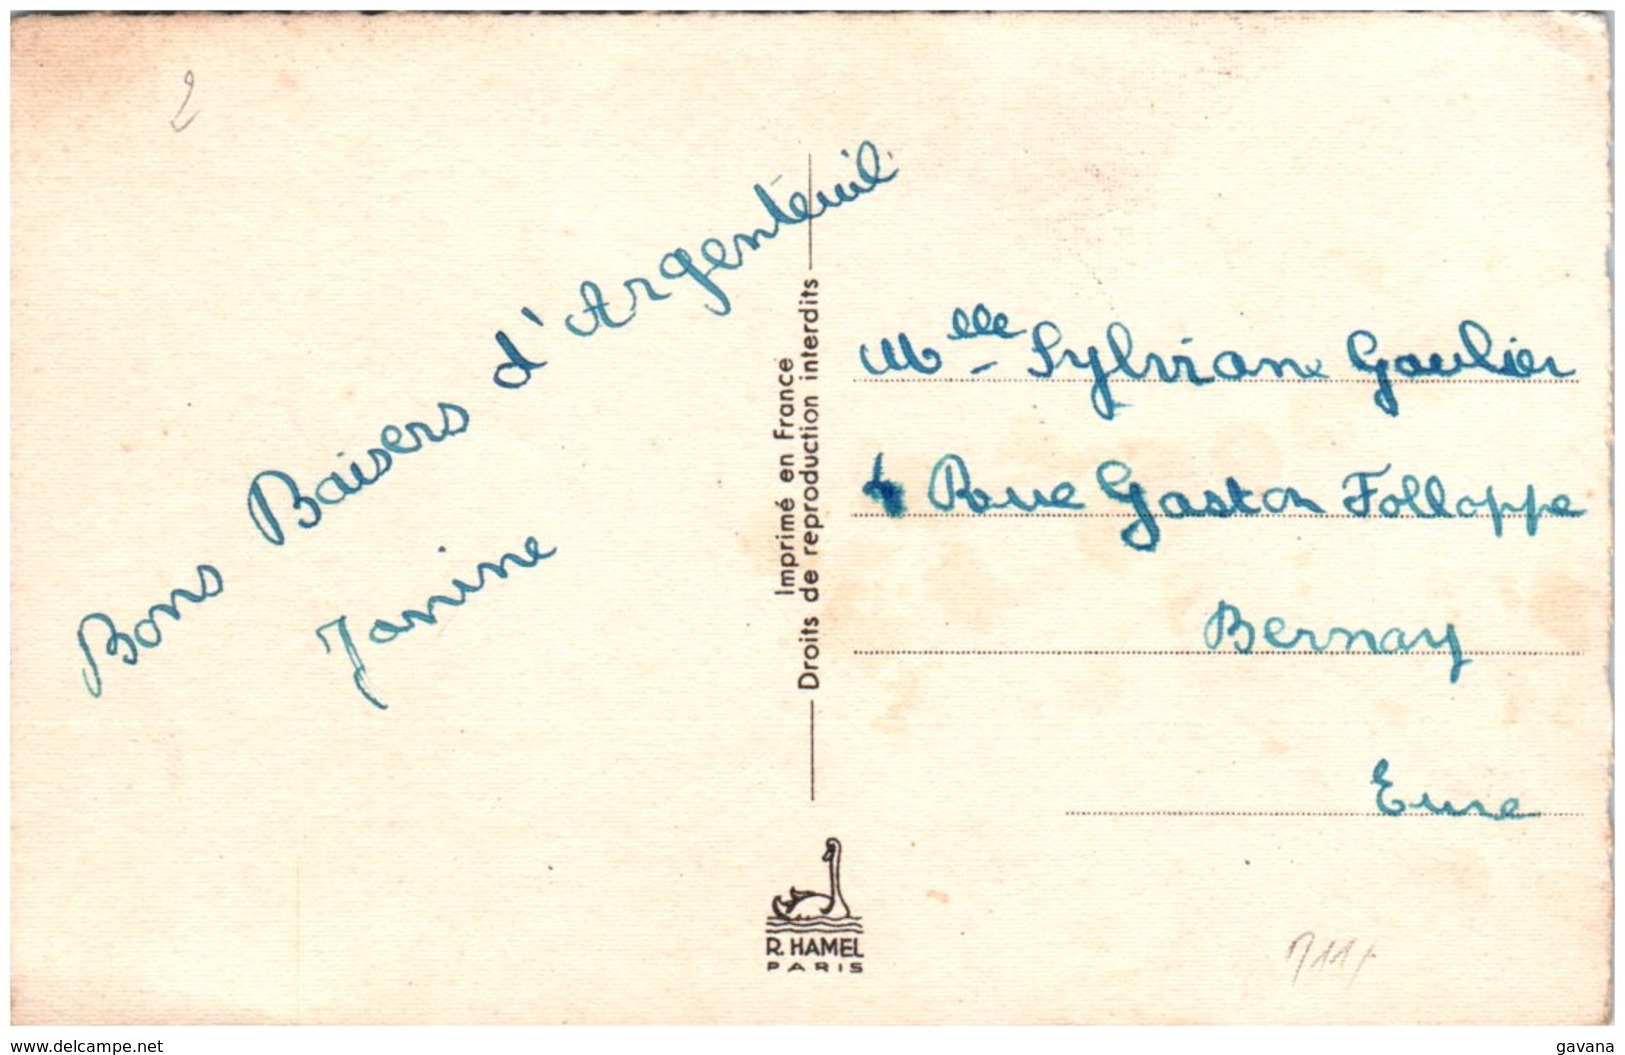 2
Bons Baisers d'Argenteuil
Janine
Imprimé en France
Droits de reproduction interdits
Mlle - Sylviane Gaulier
Rue Gaston Folloppe
Bernay
Eure
R. HAMEL
PARIS
www.delcampe.net
gavana